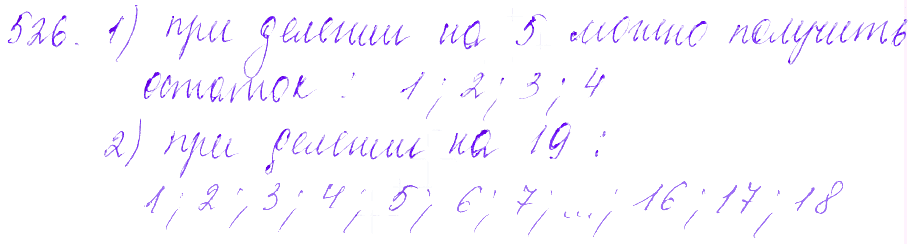 526. 1) при делении на 5 можно получить
остаток : 1 ; 2 ; 3 ; 4
2) при делении на 19 :
1 ; 2 ; 3 ; 4 ; 5 ; 6 ; 7 ; ... ; 16 ; 17 ; 18